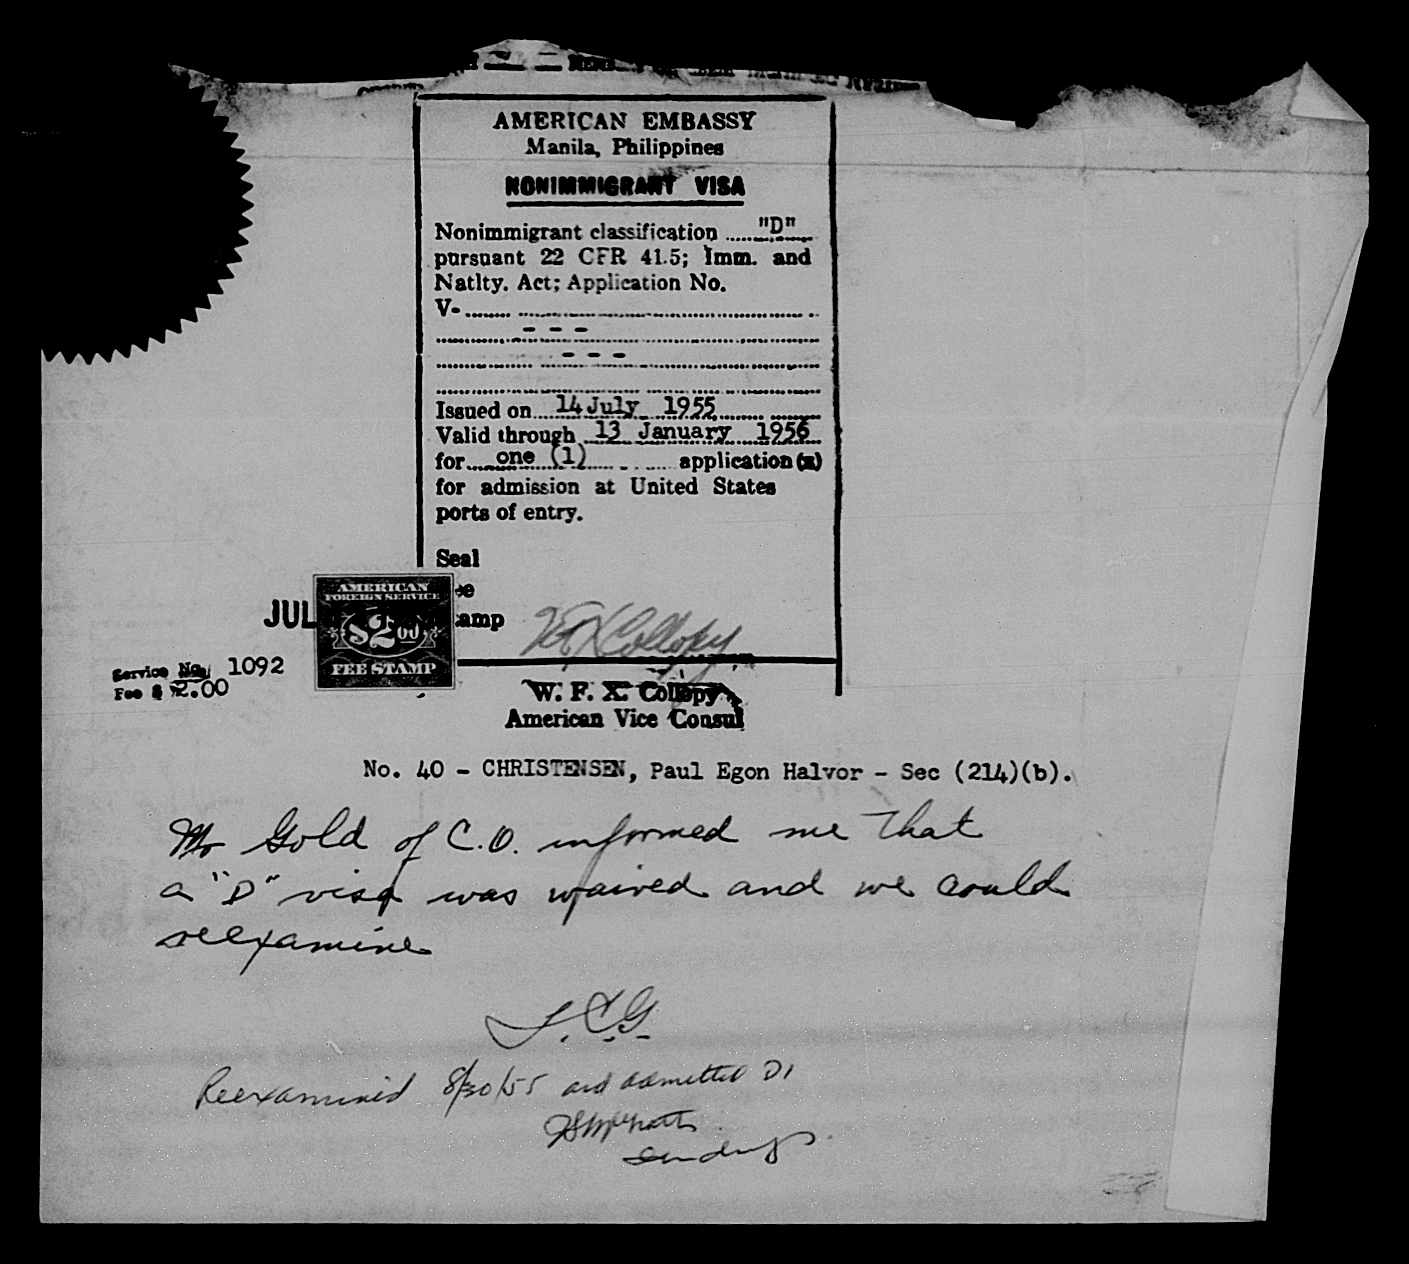 AMERICAN EMBASSY
Manila, Philippines
NONIMMIGRANT VISA
Nonimmigrant classification "D"
pursuant 22 CFR 41.5; Imm. and
Natlty. Act; Application No.
V-
- - -
- - -
Issued on 14 July 1955
Valid through 13 January 1956
for one (1) application(s)
for admission at United States
ports of entry.
Seal
JUL
AMERICAN
FOREIGN SERVICE
$2.00
FEE STAMP
Service No. 1092
Fee $ 2.00
W. F. X. Collopy
W. F. X. Collopy
American Vice Consul
No. 40 - CHRISTENSEN, Paul Egon Halvor - Sec (214)(b).
Mr Gold of C.O. informed me that
a "D" visa was waived and we could
reexamine
Reexamined 8/30/55 and admitted D1